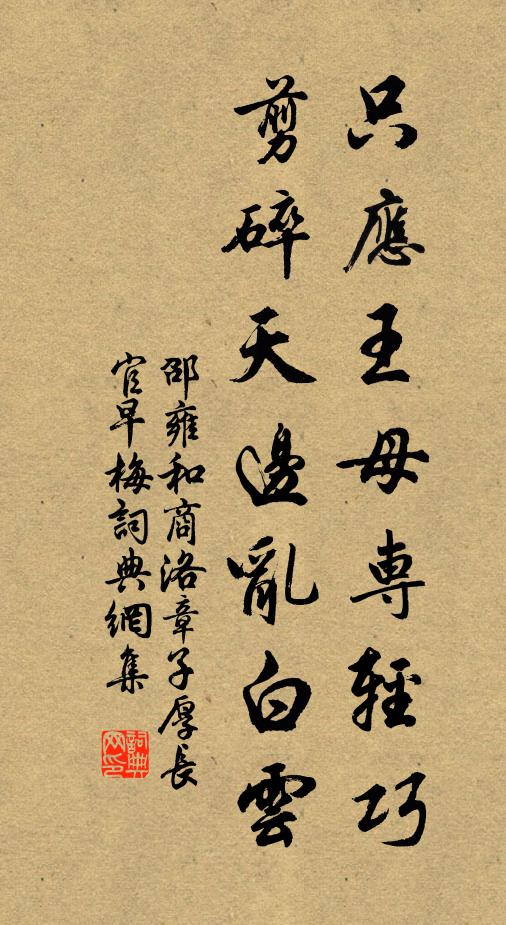 只應王母専輕巧
剪碎天邊亂白雲
邵雍和商洛章子厚長
官早梅詞典網集
詞典網印